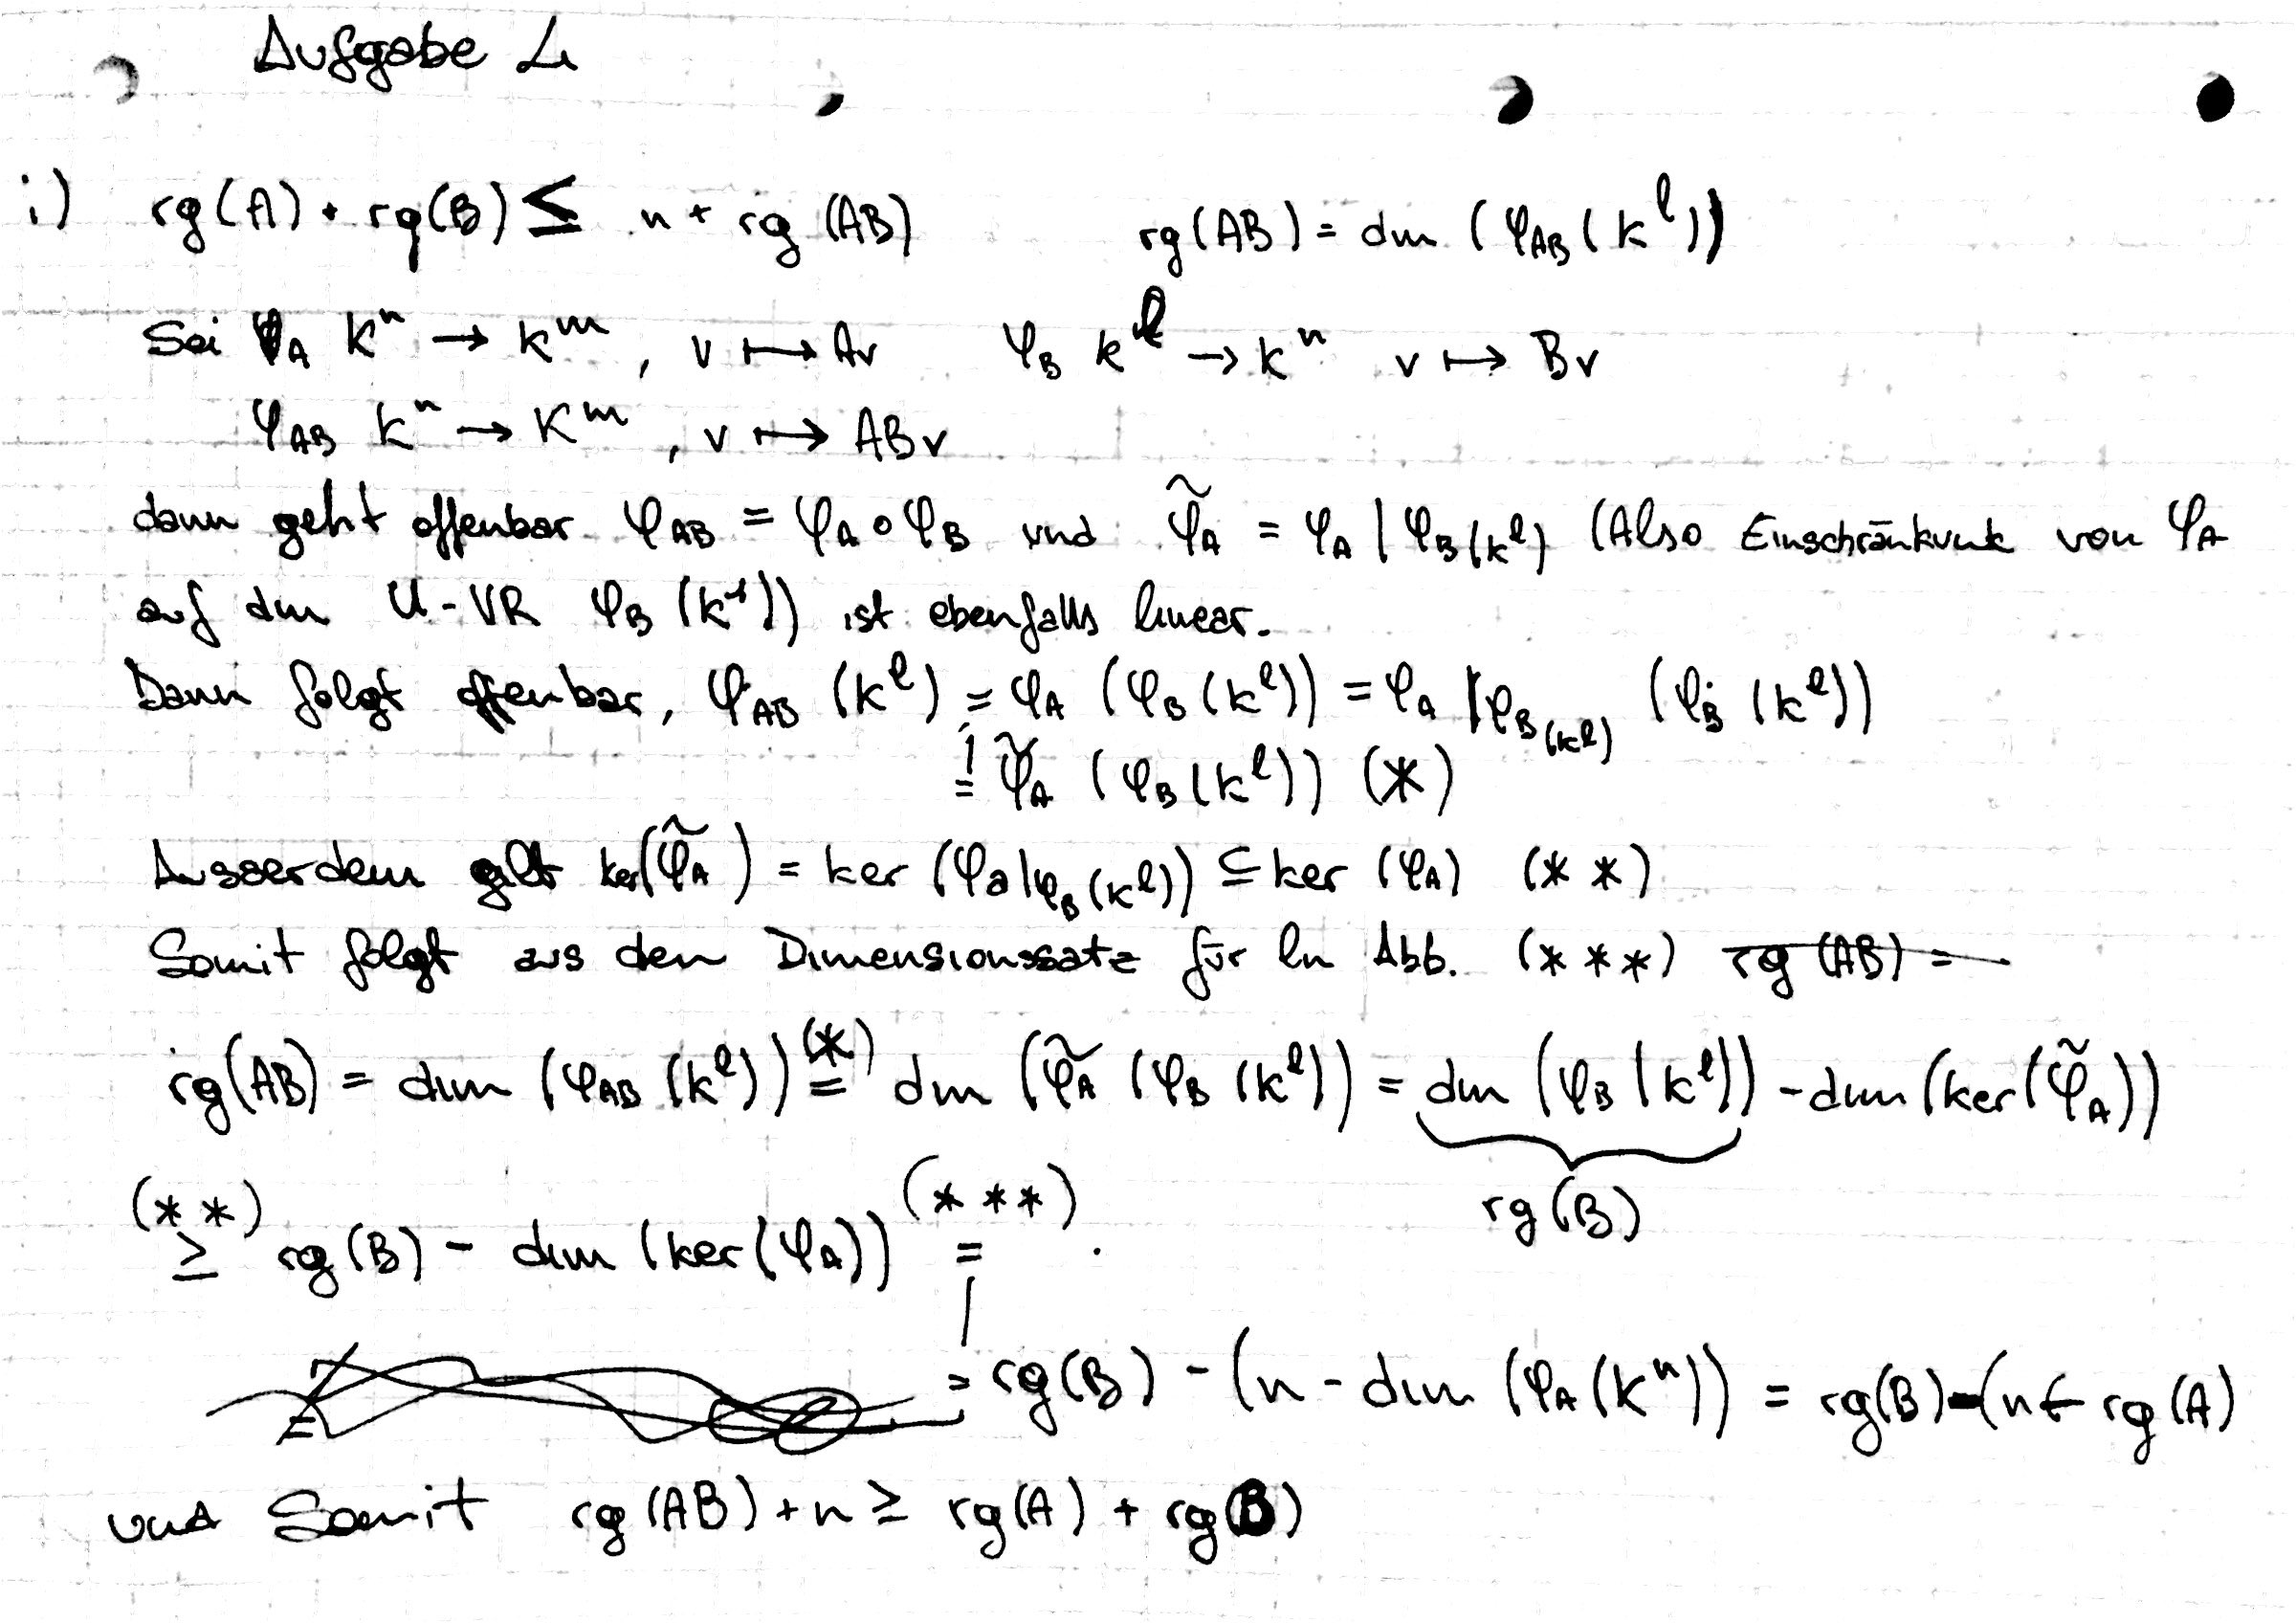 Aufgabe 4
i) rg(A) + rg(B) ≤ n + rg(AB) rg(AB) = dim (φ_AB(K^l))
Sei φ_A K^n → K^m, v ↦ Av φ_B K^l → K^n v ↦ Bv
φ_AB K^n → K^m, v ↦ ABv
dann geht offenbar φ_AB = φ_A ∘ φ_B und φ̃_A = φ_A | φ_B(K^l) (Also Einschränkunk von φ_A
auf den U-VR φ_B(K^l)) ist ebenfalls linear.
Dann folgt offenbar, φ_AB (K^l) = φ_A (φ_B(K^l)) = φ_A |φ_B(K^l) (φ_B(K^l))
= φ̃_A (φ_B(K^l)) (*)
Ausserdem gilt ker(φ̃_A) = ker (φ_a|φ_B(K^l)) ⊆ ker (φ_A) (* *)
Somit folgt aus den Dimensionssatz für lin Abb. (* * *) rg (AB) =
rg(AB) = dim (φ_AB (K^l)) (*)= dim (φ̃_A (φ_B (K^l)) = dim (φ_B(K^l)) - dim(ker(φ̃_A))
rg(B)
(* *) ≥ rg(B) - dim (ker(φ_A)) (* * *) =
= rg(B) - (n - dim (φ_A(K^n)) = rg(B) - (n - rg(A)
und Somit rg(AB) + n ≥ rg(A) + rg(B)